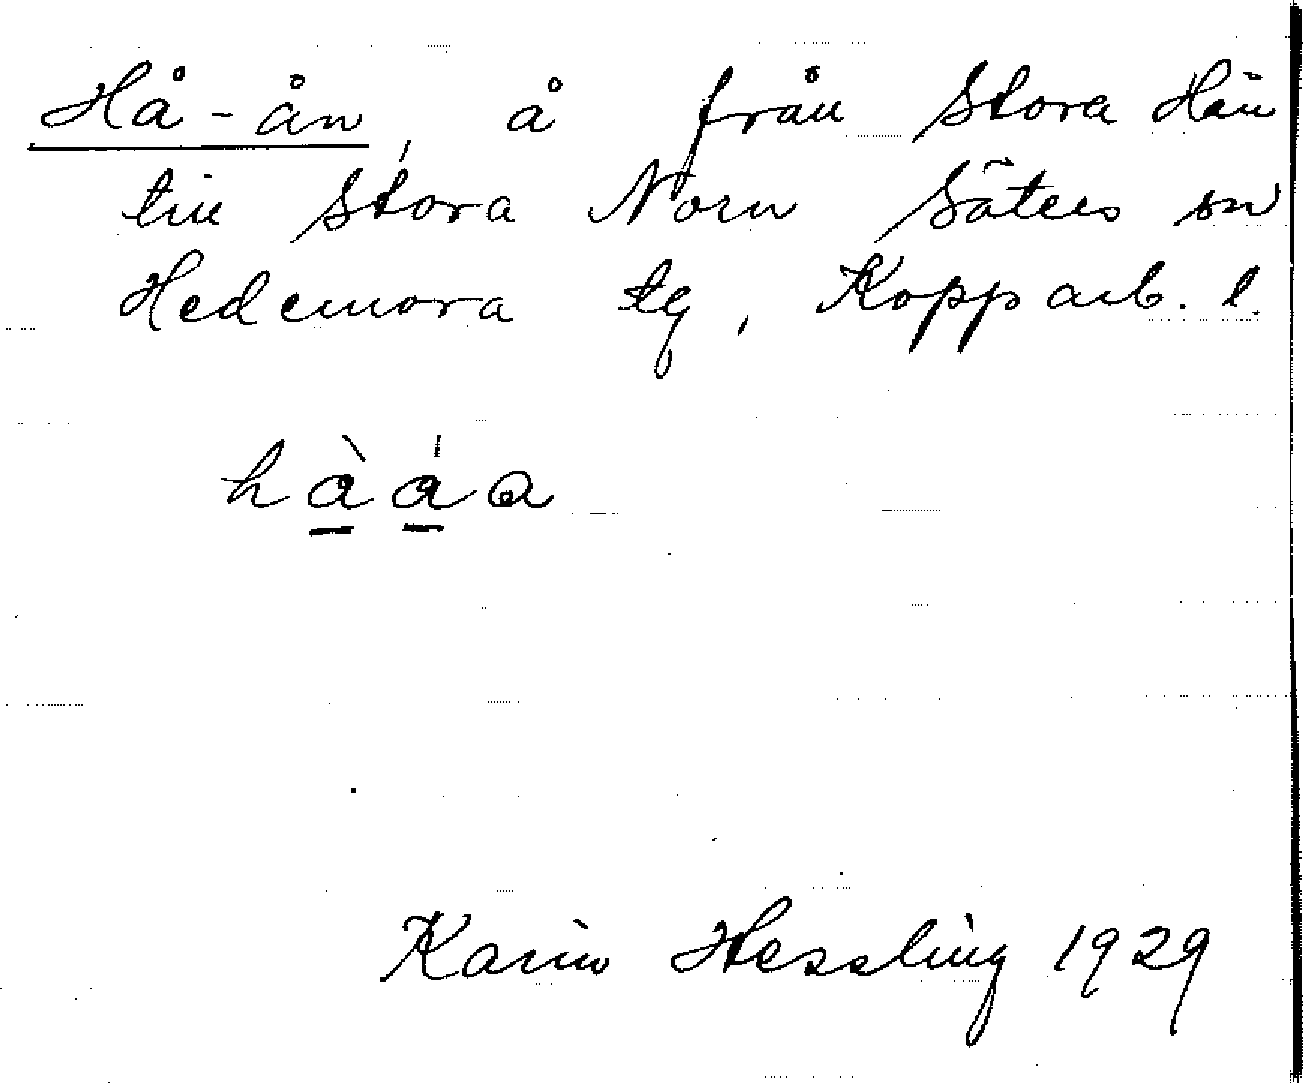 Hå-ån, å från Stora Hån
till Stora Norn Säters sn
Hedemora tg, Kopparb. l.
hàáa
Karin Hessling 1929